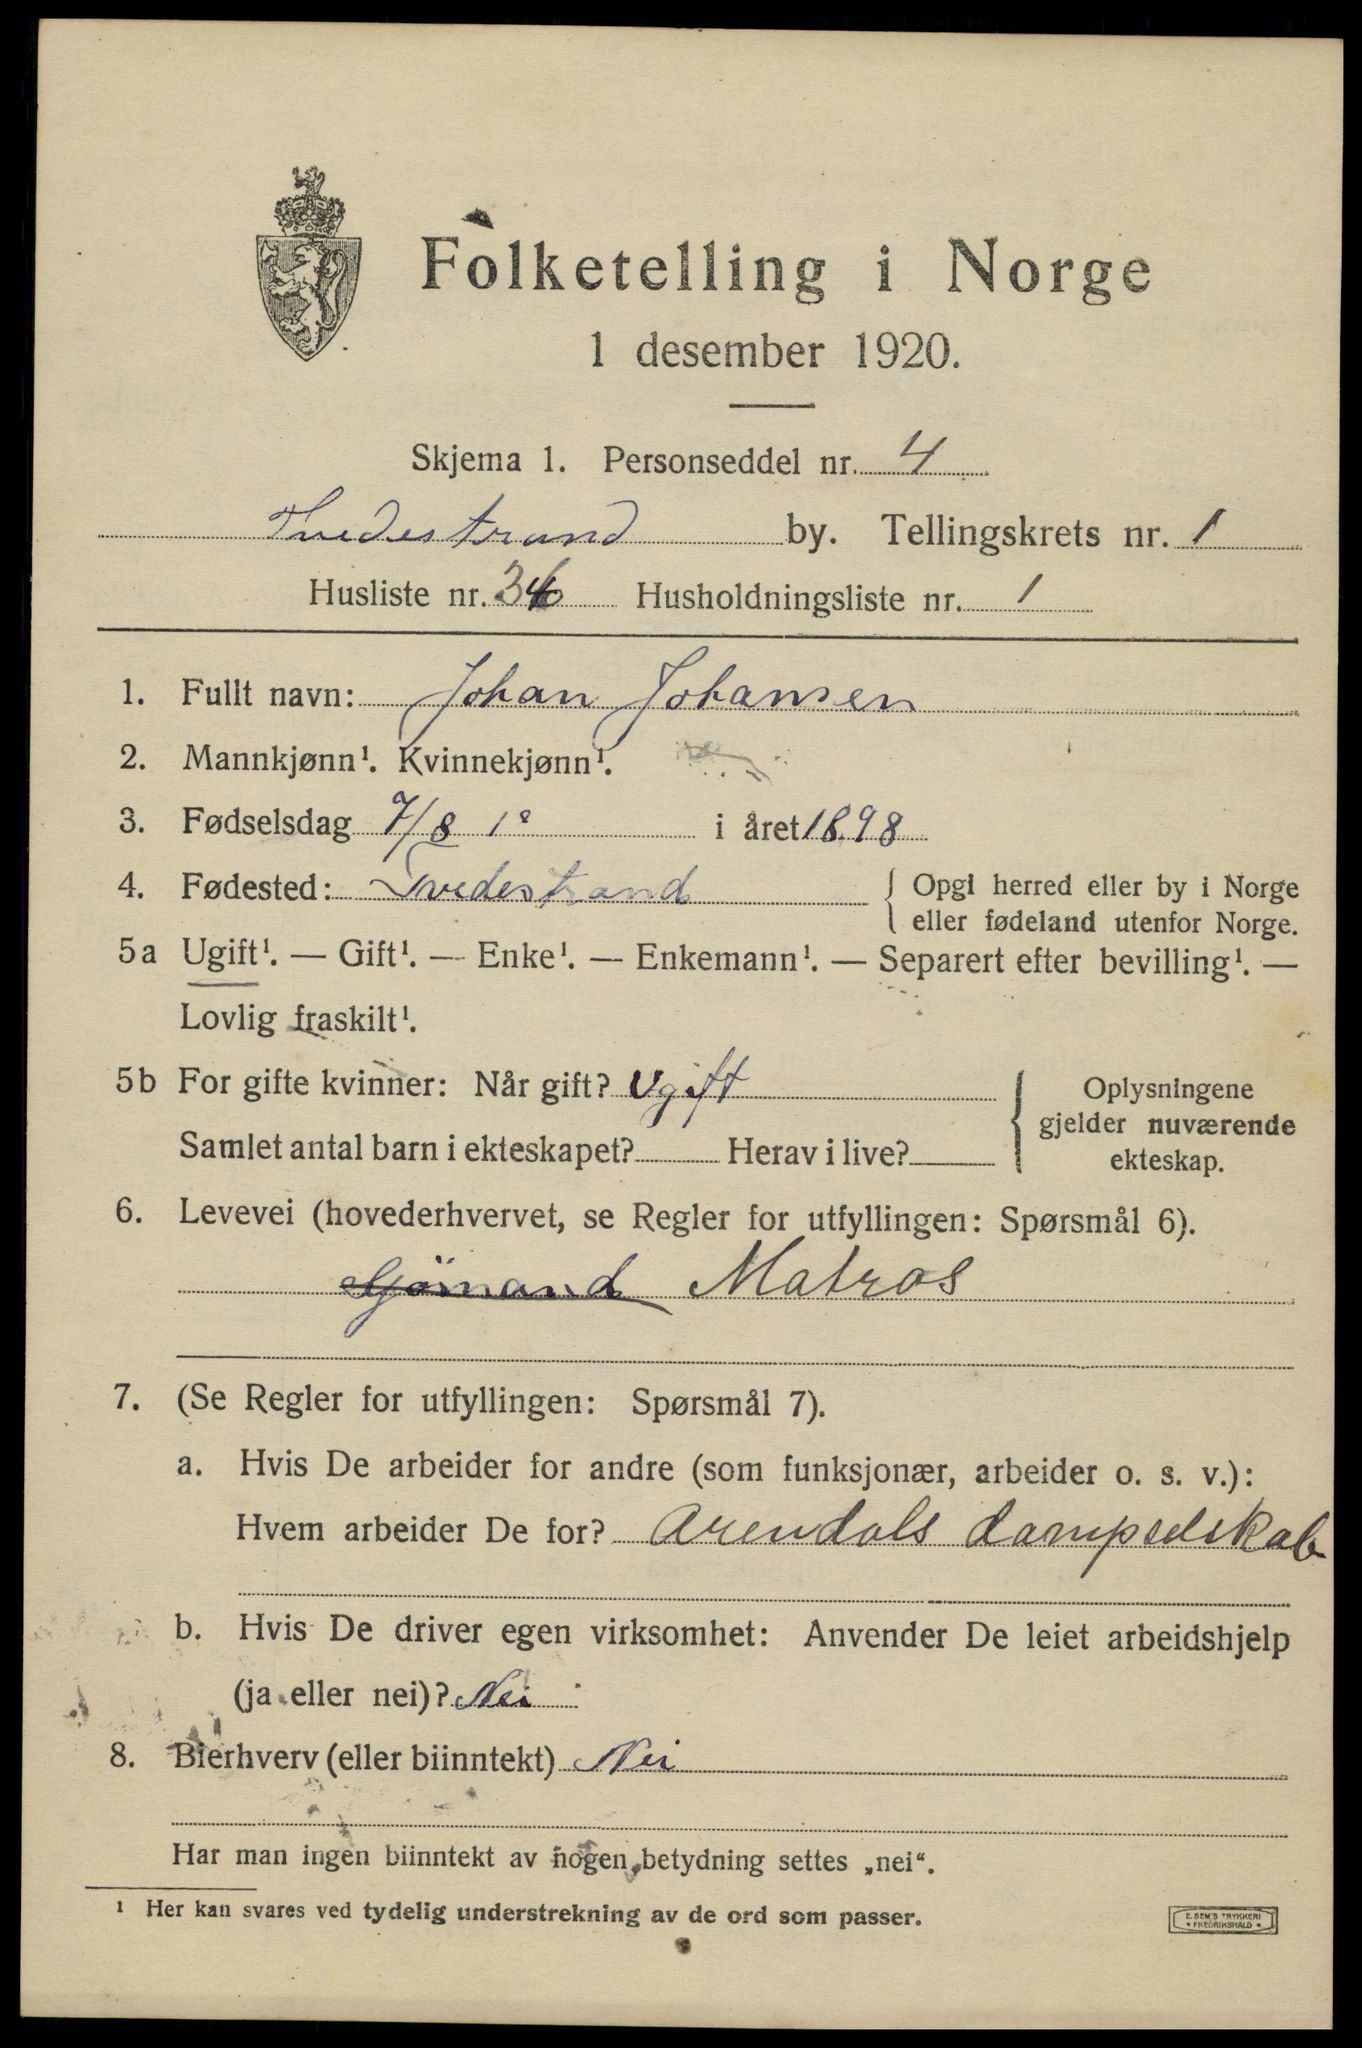 Folketelling i Norge
1 desember 1920.
Skjema 1. Personseddel nr. 4
Tvedestrand by. Tellingskrets nr. 1
Husliste nr. Husholdningsliste nr. 1
1. Fullt navn: Johan Johansen
2. Mannkjønn¹. Kvinnekjønn¹.
3. Fødselsdag 7/8 i året 1898
4. Fødested: Tvedestrand { Opgi herred eller by i Norge
eller fødeland utenfor Norge.
5a Ugift¹. — Gift¹. — Enke¹. — Enkemann¹. — Separert efter bevilling¹. —
Lovlig fraskilt¹.
5b For gifte kvinner: Når gift? Ugift
Samlet antal barn i ekteskapet? Herav i live?
{ Oplysningene
gjelder nuværende
ekteskap.
6. Levevei (hovederhvervet, se Regler for utfyllingen: Spørsmål 6).
Sjömand Matros
7. (Se Regler for utfyllingen: Spørsmål 7).
a. Hvis De arbeider for andre (som funksjonær, arbeider o. s. v.):
Hvem arbeider De for? Arendals dampselskab
b. Hvis De driver egen virksomhet: Anvender De leiet arbeidshjelp
(ja eller nei)? Nei
8. Bierhverv (eller biinntekt) Nei
Har man ingen biinntekt av nogen betydning settes „nei“.
¹ Her kan svares ved tydelig understrekning av de ord som passer.
E. SEM'S TRYKKERI
* FREDRIKSHALD *